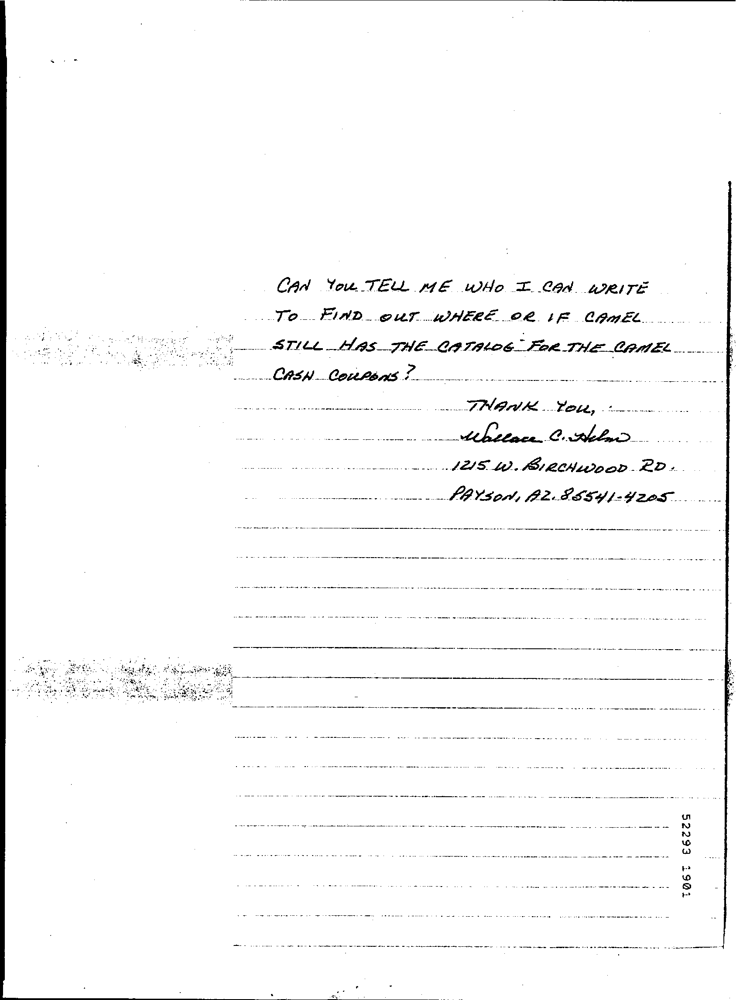 CAN YOU TELL ME WHO I CAN WRITE
TO FIND OUT WHERE OR IF CAMEL
STILL HAS THE CATALOG FOR THE CAMEL
CASH COUPONS?
THANK YOU,
Wallace C. Helm
1215 W. BIRCHWOOD RD.
PAYSON, AZ. 85541-4205
52293 1901